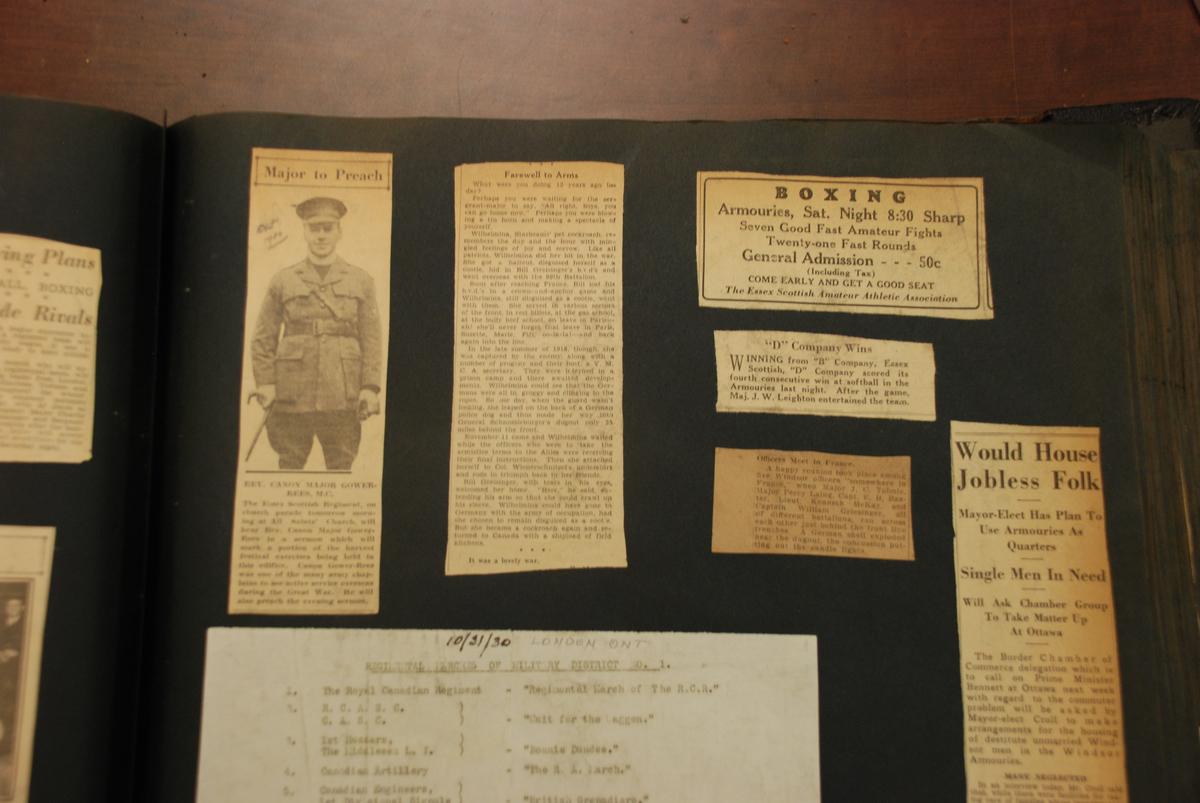 ing Plans
ALL, BOXING
de Rivals
Major to Preach
REV. CANON MAJOR GOWER-
REES, M.C.
The Essex Scottish Regiment, on
church parade tomorrow morn-
ing at All Saints' Church, will
hear Rev. Canon Major Gower-
Rees in a sermon which will
mark a portion of the harvest
festival exercises being held in
this edifice. Canon Gower-Rees
was one of the many army chap-
lains to see active service overseas
during the Great War. He will
also preach the evening sermon.
Farewell to Arms
What were you doing 12 years ago
day?
Perhaps you were waiting for the ser-
geant-major to say, "All right, boys, you
can go home now." Perhaps you were blow-
ing a tin horn and making a spectacle of
yourself.
Wilhelmina, Starbeams' pet cockroach, re-
members the day and the hour with min-
gled feelings of joy and sorrow. Like all
patriots, Wilhelmina did her bit in the war.
She got a haircut, disguised herself as a
cootie, hid in Bill Greisinger's b.v.d's and
went overseas with the 99th Battalion.
Soon after reaching France, Bill lost his
b.v.d.'s in a crown-and-anchor game and
Wilhelmina, still disguised as a cootie, went
with them. She served in various sectors
of the front, in rest billets, at the gas school,
at the bully beef school, on leave in Paris—
ah! she'll never forget that leave in Paris,
Suzette, Marie, Fifi, oo-la-la!—and back
again into the line.
In the late summer of 1918, though, she
was captured by the enemy along with a
number of progeny and their host, a Y. M.
C. A. secretary. They were interned in a
prison camp and there awaited develop-
ments. Wilhelmina could see that the Ger-
mans were all in, groggy and clinging to the
ropes. So one day, when the guard wasn't
looking, she leaped on the back of a German
police dog and thus made her way into
General dugout only 25
miles behind the front.
November 11 came and Wilhelmina waited
while the officers who were to take the
armistice terms to the Allies were receiving
their final instructions. Then she attached
herself to Col. underskirt
and rode in triumph back to her friends.
Bill Greisinger, with tears in his eyes,
welcomed her home. "Here," he said, ex-
tending his arm so that she could crawl up
his sleeve. Wilhelmina could have gone to
Germany with the army of occupation, had
she chosen to remain disguised as a cootie.
But she became a cockroach again and re-
turned to Canada with a shipload of field
kitchens.
* * *
It was a lovely war.
BOXING
Armouries, Sat. Night 8:30 Sharp
Seven Good Fast Amateur Fights
Twenty-one Fast Rounds
General Admission - - - 50c
(Including Tax)
COME EARLY AND GET A GOOD SEAT
The Essex Scottish Amateur Athletic Association
"D" Company Wins
WINNING from "B" Company, Essex
Scottish, "D" Company scored its
fourth consecutive win at softball in the
Armouries last night. After the game,
Maj. J. W. Leighton entertained the team.
Officers Meet in France.
A happy reunion took place among
five Windsor officers "somewhere in
France," when Major J. C. Tolmie,
Major Percy Laing, Capt. E. B. Bax-
ter, Lieut. Kenneth McKay, and
Captain William Griesinger, all
of different battalions, ran across
each other just behind the front line
trenches. A German shell exploded
near the dugout, the concussion put-
ting out the candle lights.
Would House
Jobless Folk
Mayor-Elect Has Plan To
Use Armouries As
Quarters
Single Men In Need
Will Ask Chamber Group
To Take Matter Up
At Ottawa
The Border Chamber of
Commerce delegation which is
to call on Prime Minister
Bennett at Ottawa next week
with regard to the commuter
problem will be asked by
Mayor-elect Croll to make
arrangements for the housing
of destitute unmarried Wind-
sor men in the Windsor
Armouries.
MANY NEGLECTED
In an interview today, Mr. Croll said
10/31/30 LONDON ONT
REGIMENTAL MARCHES OF MILITARY DISTRICT NO. 1.
1. The Royal Canadian Regiment - "Regimental March of The R.C.R."
2. R. C. A. S. C. }
C. A. S. C. } - "Wait for the Waggon."
3. 1st Hussars, }
The Middlesex L. I. } - "Bonnie Dundee."
4. Canadian Artillery - "The R. A. March."
5. Canadian Engineers, }
1st Divisional Signals } - "British Grenadiers."